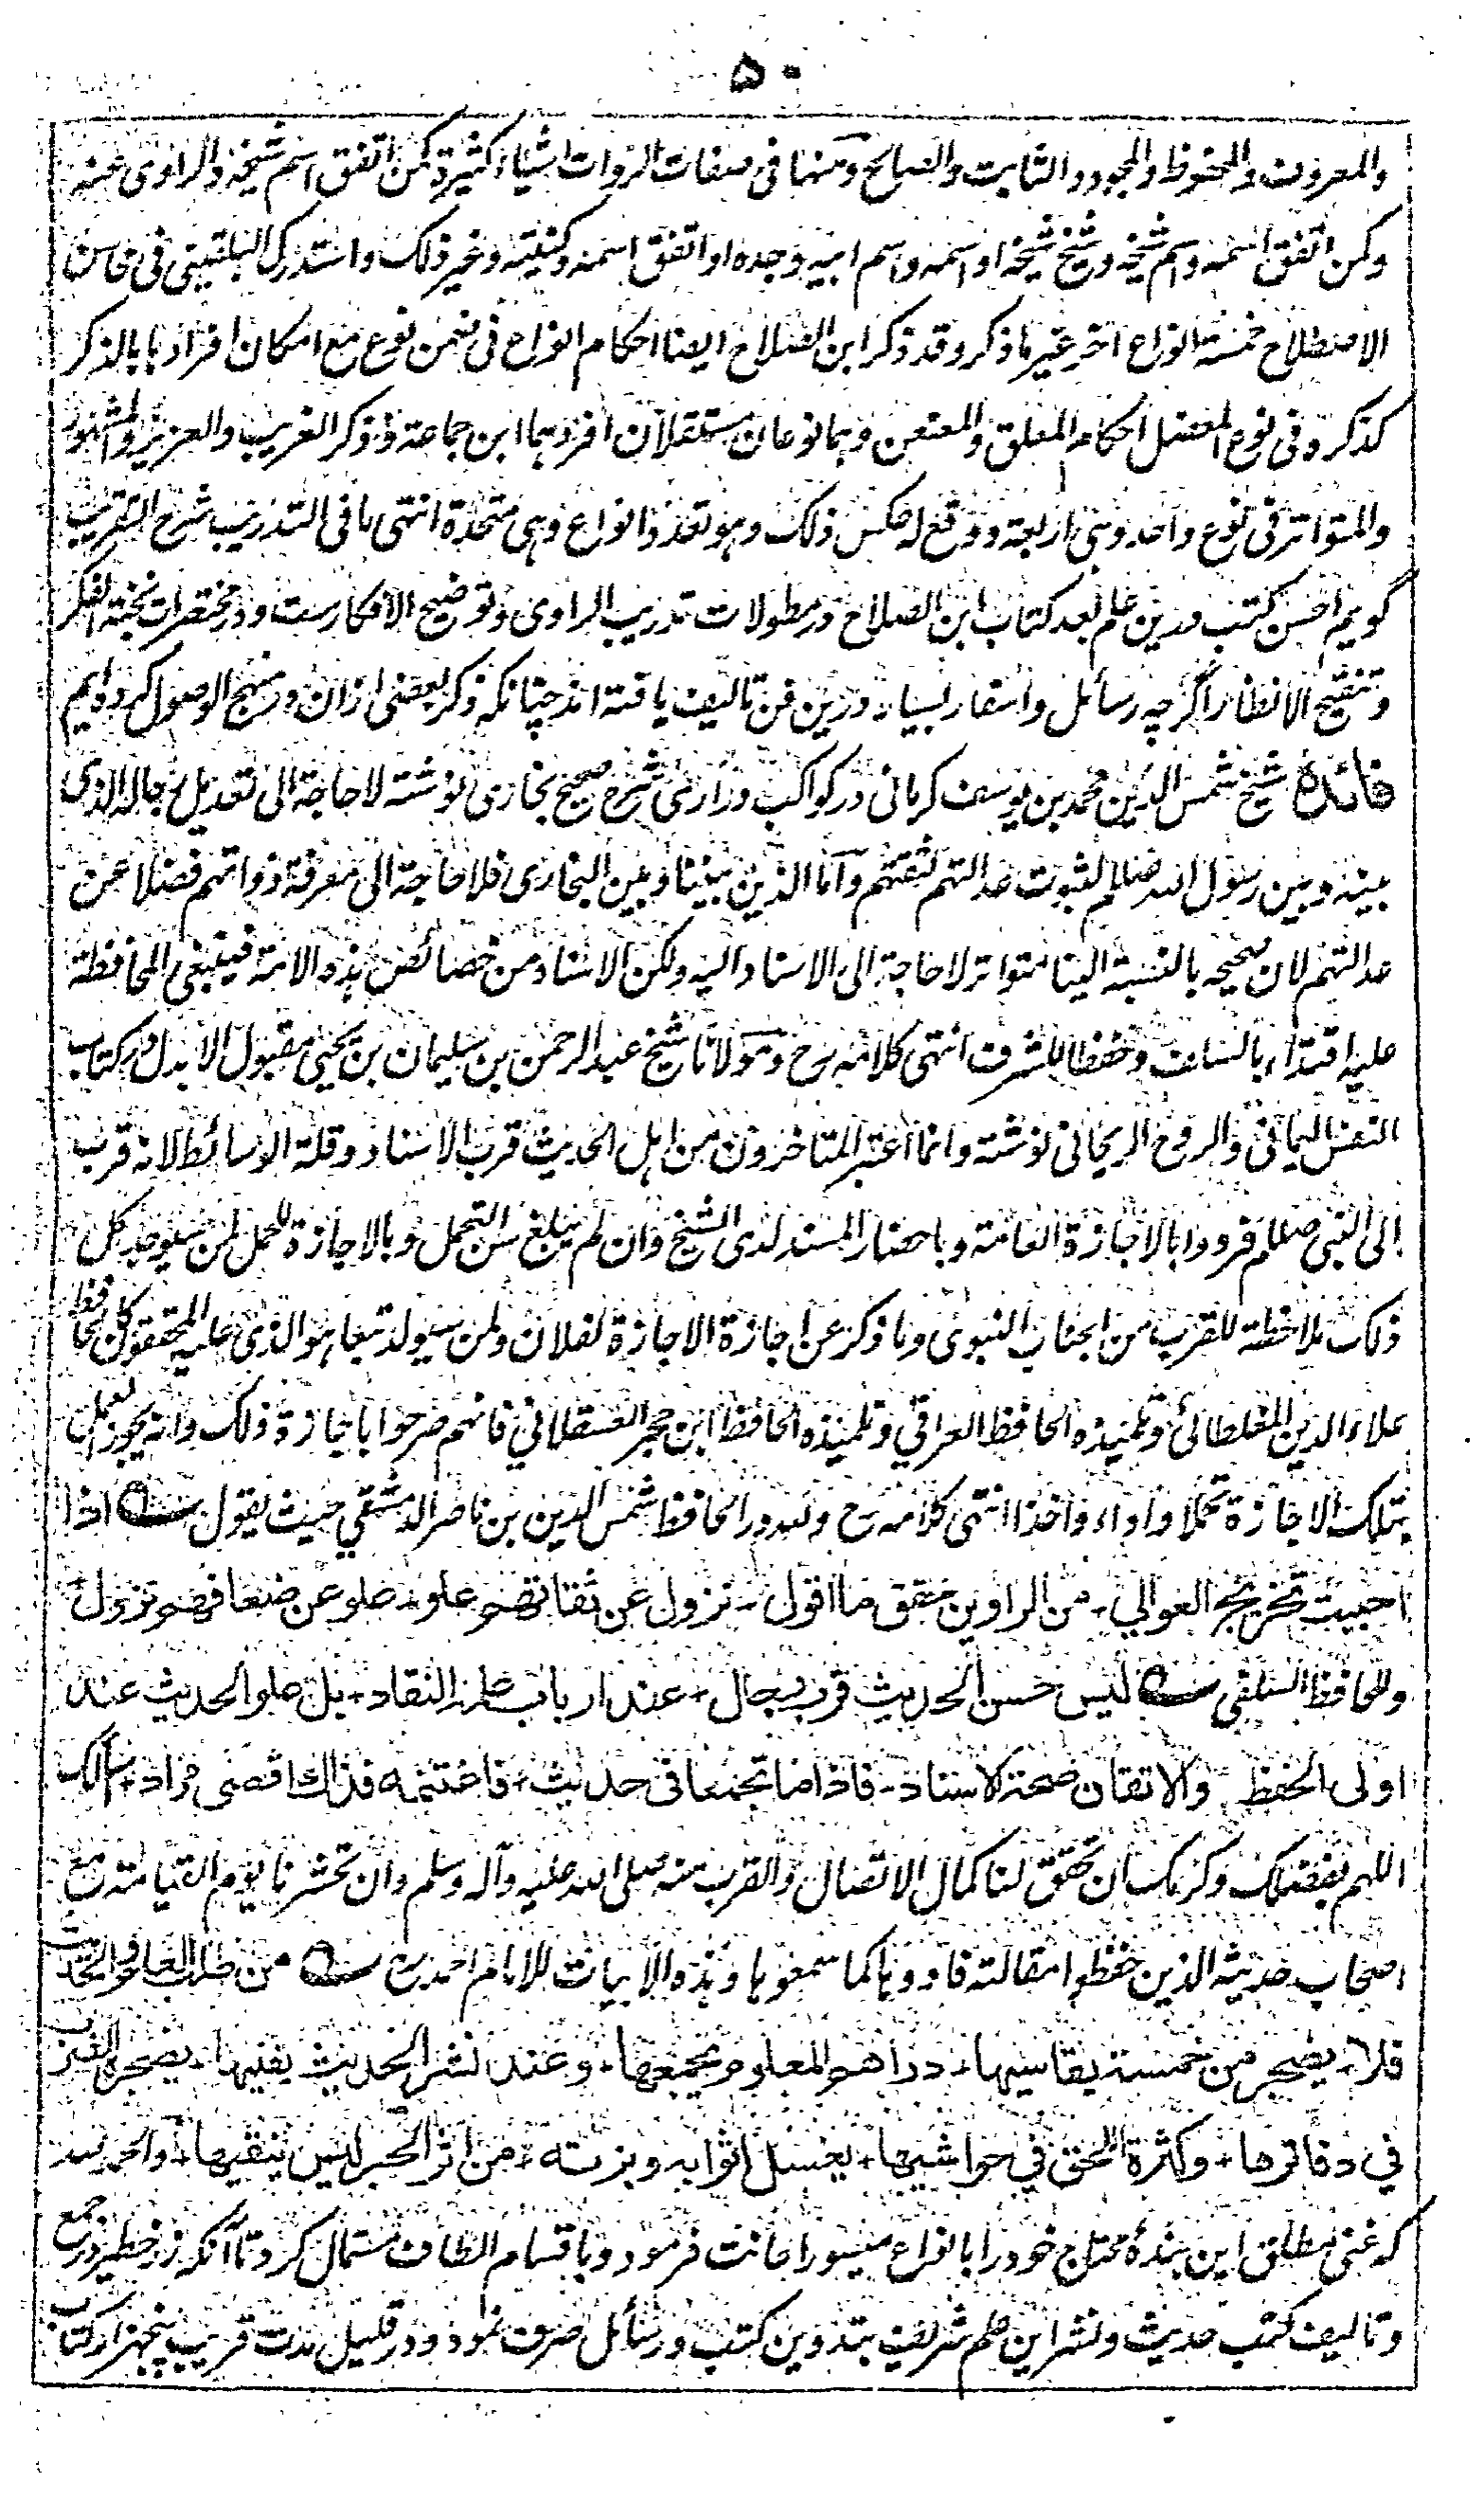 ۵۰
والمعروف والمحفوظ والمجود والثابت والصالح ومنها فی صفات الروات اشیاء کثیرة کمن اتفق اسم شیخه والراوی عنه
وکمن اتفق اسمه واسم شیخه وشیخ شیخه او اسمه واسم ابیه وجده او اتفق اسمه وکنیته وغیر ذلک واستدرک البلقینی فی محاسن
الاصطلاح خمسة انواع اخر غیر ما ذکر وقد ذکر ابن الصلاح ایضا احکام انواع فی ضمن نوع مع امکان افرادها بالذکر
کذکره فی نوع المعضل احکام المعلق والمعنعن وهما نوعان مستقلان افردهما ابن جماعة وذکر الغریب والعزیز والمشهور
والمتواتر فی نوع واحد وهی اربعة ووقع له عکس ذلک وهو تعدد انواع وهی متحدة انتهی ما فی التدریب شرح التقریب
گویم احسن کتب درین علم بعد کتاب ابن الصلاح در مطولات تدریب الراوی وتوضیح الافکارست ودر مختصرات نخبة الفکر
وتنقیح الانظار اگرچه رسائل واسفار بسیار درین فن تالیف یافته اند چنانکه ذکر بعضی ازان در منهج الوصول کرده ایم
فائدة شیخ شمس الدین محمد بن یوسف کرمانی در کواکب دراری شرح صحیح بخاری نوشته لا حاجة الی تعدیل رجاله الذی
بینه وبین رسول الله صللم لثبوت عدالتهم ثقتهم واما الذین بیننا وبین البخاری فلا حاجة الی معرفة ذواتهم فضلا عن
عدالتهم لان صحیحه بالنسبة الینا متواتر لا حاجة الی الاسناد الیه ولکن الاسناد من خصائص هذه الامة فینبغی المحافظة
علیه اقتداء بالسلف وحفظا للشرف انتهی کلامه رح ومولانا شیخ عبد الرحمن بن سلیمان بن یحیی مقبول الاهدل در کتاب
النفس الیمانی والروح الریحانی نوشته وانما اعتبر المتاخرون من اهل الحدیث قرب الاسناد وقلة الوسائط لانه قرب
الی النبی صللم فرووا بالاجازة العامة وباحضار المسند لدی الشیخ وان لم یبلغ سن التحمل وبالاجازة للحمل لمن سیوجد کل
ذلک ملاحظة للقرب من الجناب النبوی وما ذکر عن اجازة الاجازة لفلان ولمن سیولد تبعا هو الذی علیه المحققون کالحافظ
علاء الدین المغلطائی وتلمیذه الحافظ العراقی وتلمیذه الحافظ ابن حجر العسقلانی فانهم صرحوا باجازة ذلک وانه یجوز العمل
بتلک الاجازة تحملا واداء واخذا انتهی کلامه رح ولله در الحافظ شمس الدین بن ناصر الدمشقی حیث یقول ـــه اذا
احببت تخریج العوالی - من الراوین حقق ما اقول - نزول عن ثقاتهم علو - علو عن ضعافهم نزول
وللحافظ السلفی ـــه لیس حسن الحدیث قرب رجال + عند ارباب علمه النقاد + بل علو الحدیث عند
اولی الحفظ والاتقان صحة الاسناد - فاذا ما تجمعا فی حدیث + فاغتنمه فذاك اقصی مراد + نسألک
اللهم بفضلک وکرمک ان تحقق لنا کمال الاتصال والقرب منه صلی الله علیه وآله وسلم وان تحشرنا یوم القیامة مع
اصحاب حدیثه الذین حفظوا مقالته فادوها کما سمعوها وهذه الابیات للامام احمد رح ـــه من طلب العلم والحدیث
فلا + یضجر من خمسة یقاسیها + دراهم للعلوم یجمعها + وعند نشر الحدیث یفنیها + یضجره الضرب
فی دفاترها + وکثرة اللحق فی حواشیها + یغسل اثوابه وبزته + من اثر الحبر لیس ینقیها + والحمد لله
که غنی مطلق این بندۀ محتاج خود را بانواع میسور اعانت فرمود وباقسام الطاف مستمال کرد تا آنکه زر خطیر در جمع
وتالیف کتب حدیث ونشر این علم شریف بتدوین کتب ورسائل صرف نمود ودر قلیل مدت قریب پنجهزار کتاب